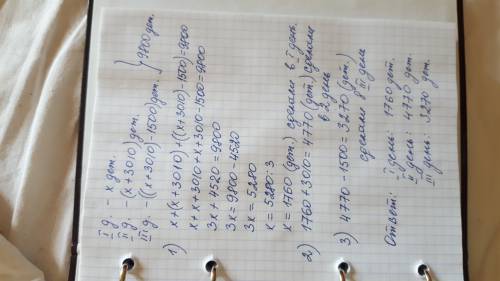 I д. - x дет.
II д. - (x+3010) дет.
III д. - ((x+3010)-1500) дет. } 9800 дет.
1) x+(x+3010)+((x+3010)-1500)=9800
x+x+3010+x+3010-1500=9800
3x+4520=9800
3x=9800-4520
3x=5280
x=5280:3
x=1760 (дет.) сделали в I день.
2) 1760+3010=4770 (дет.) сделали
в 2 день
3) 4770-1500=3270 (дет.)
сделали в III день
Ответ: I день: 1760 дет.
II день: 4770 дет.
III день: 3270 дет.